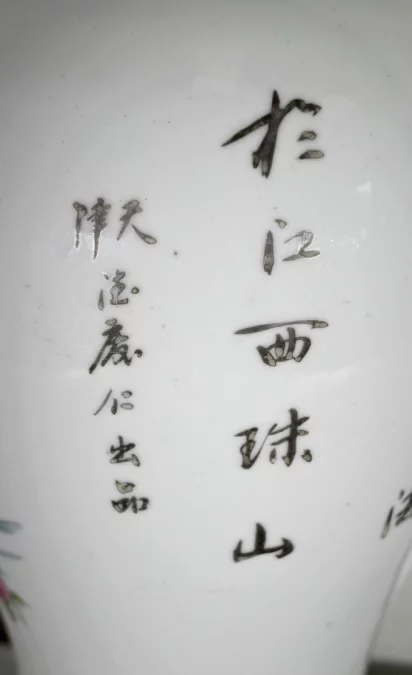 於江西珠山
天津
德慶仁出品